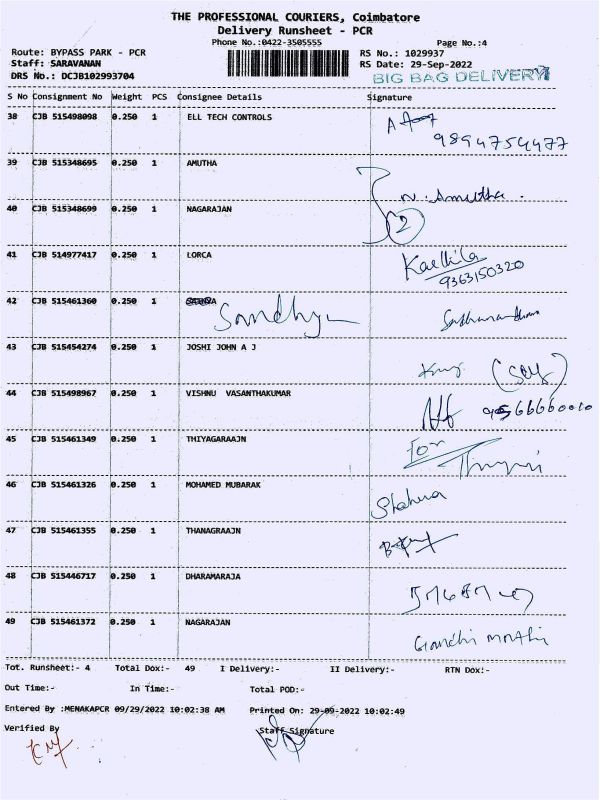 THE PROFESSIONAL COURIERS, Coimbatore
Delivery Runsheet - PCR
Phone No.:0422-3505555 Page No.:4
Route: BYPASS PARK - PCR RS No.: 1029937
Staff: SARAVANAN RS Date: 29-Sep-2022
DRS No.: DCJB102993704 BIG BAG DELIVERY
S No Consignment No Weight PCS Consignee Details Signature
38 CJB 515498098 0.250 1 ELL TECH CONTROLS
9894754477
39 CJB 515348695 0.250 1 AMUTHA N. Amutha.
40 CJB 515348699 0.250 1 NAGARAJAN 2
41 CJB 514977417 0.250 1 LORCA
9363150320
42 CJB 515461360 0.250 1 Sandhya
43 CJB 515454274 0.250 1 JOSHI JOHN A J
44 CJB 515498967 0.250 1 VISHNU VASANTHAKUMAR
45 CJB 515461349 0.250 1 THIYAGARAAJN For
46 CJB 515461326 0.250 1 MOHAMED MUBARAK
47 CJB 515461355 0.250 1 THANAGRAAJN
48 CJB 515446717 0.250 1 DHARAMARAJA
49 CJB 515461372 0.250 1 NAGARAJAN
Tot. Runsheet:- 4 Total Dox:- 49 I Delivery:- II Delivery:- RTN Dox:-
Out Time:- In Time:- Total POD:-
Entered By :MENAKAPCR 09/29/2022 10:02:38 AM Printed On: 29-09-2022 10:02:49
Verified By Staff Signature